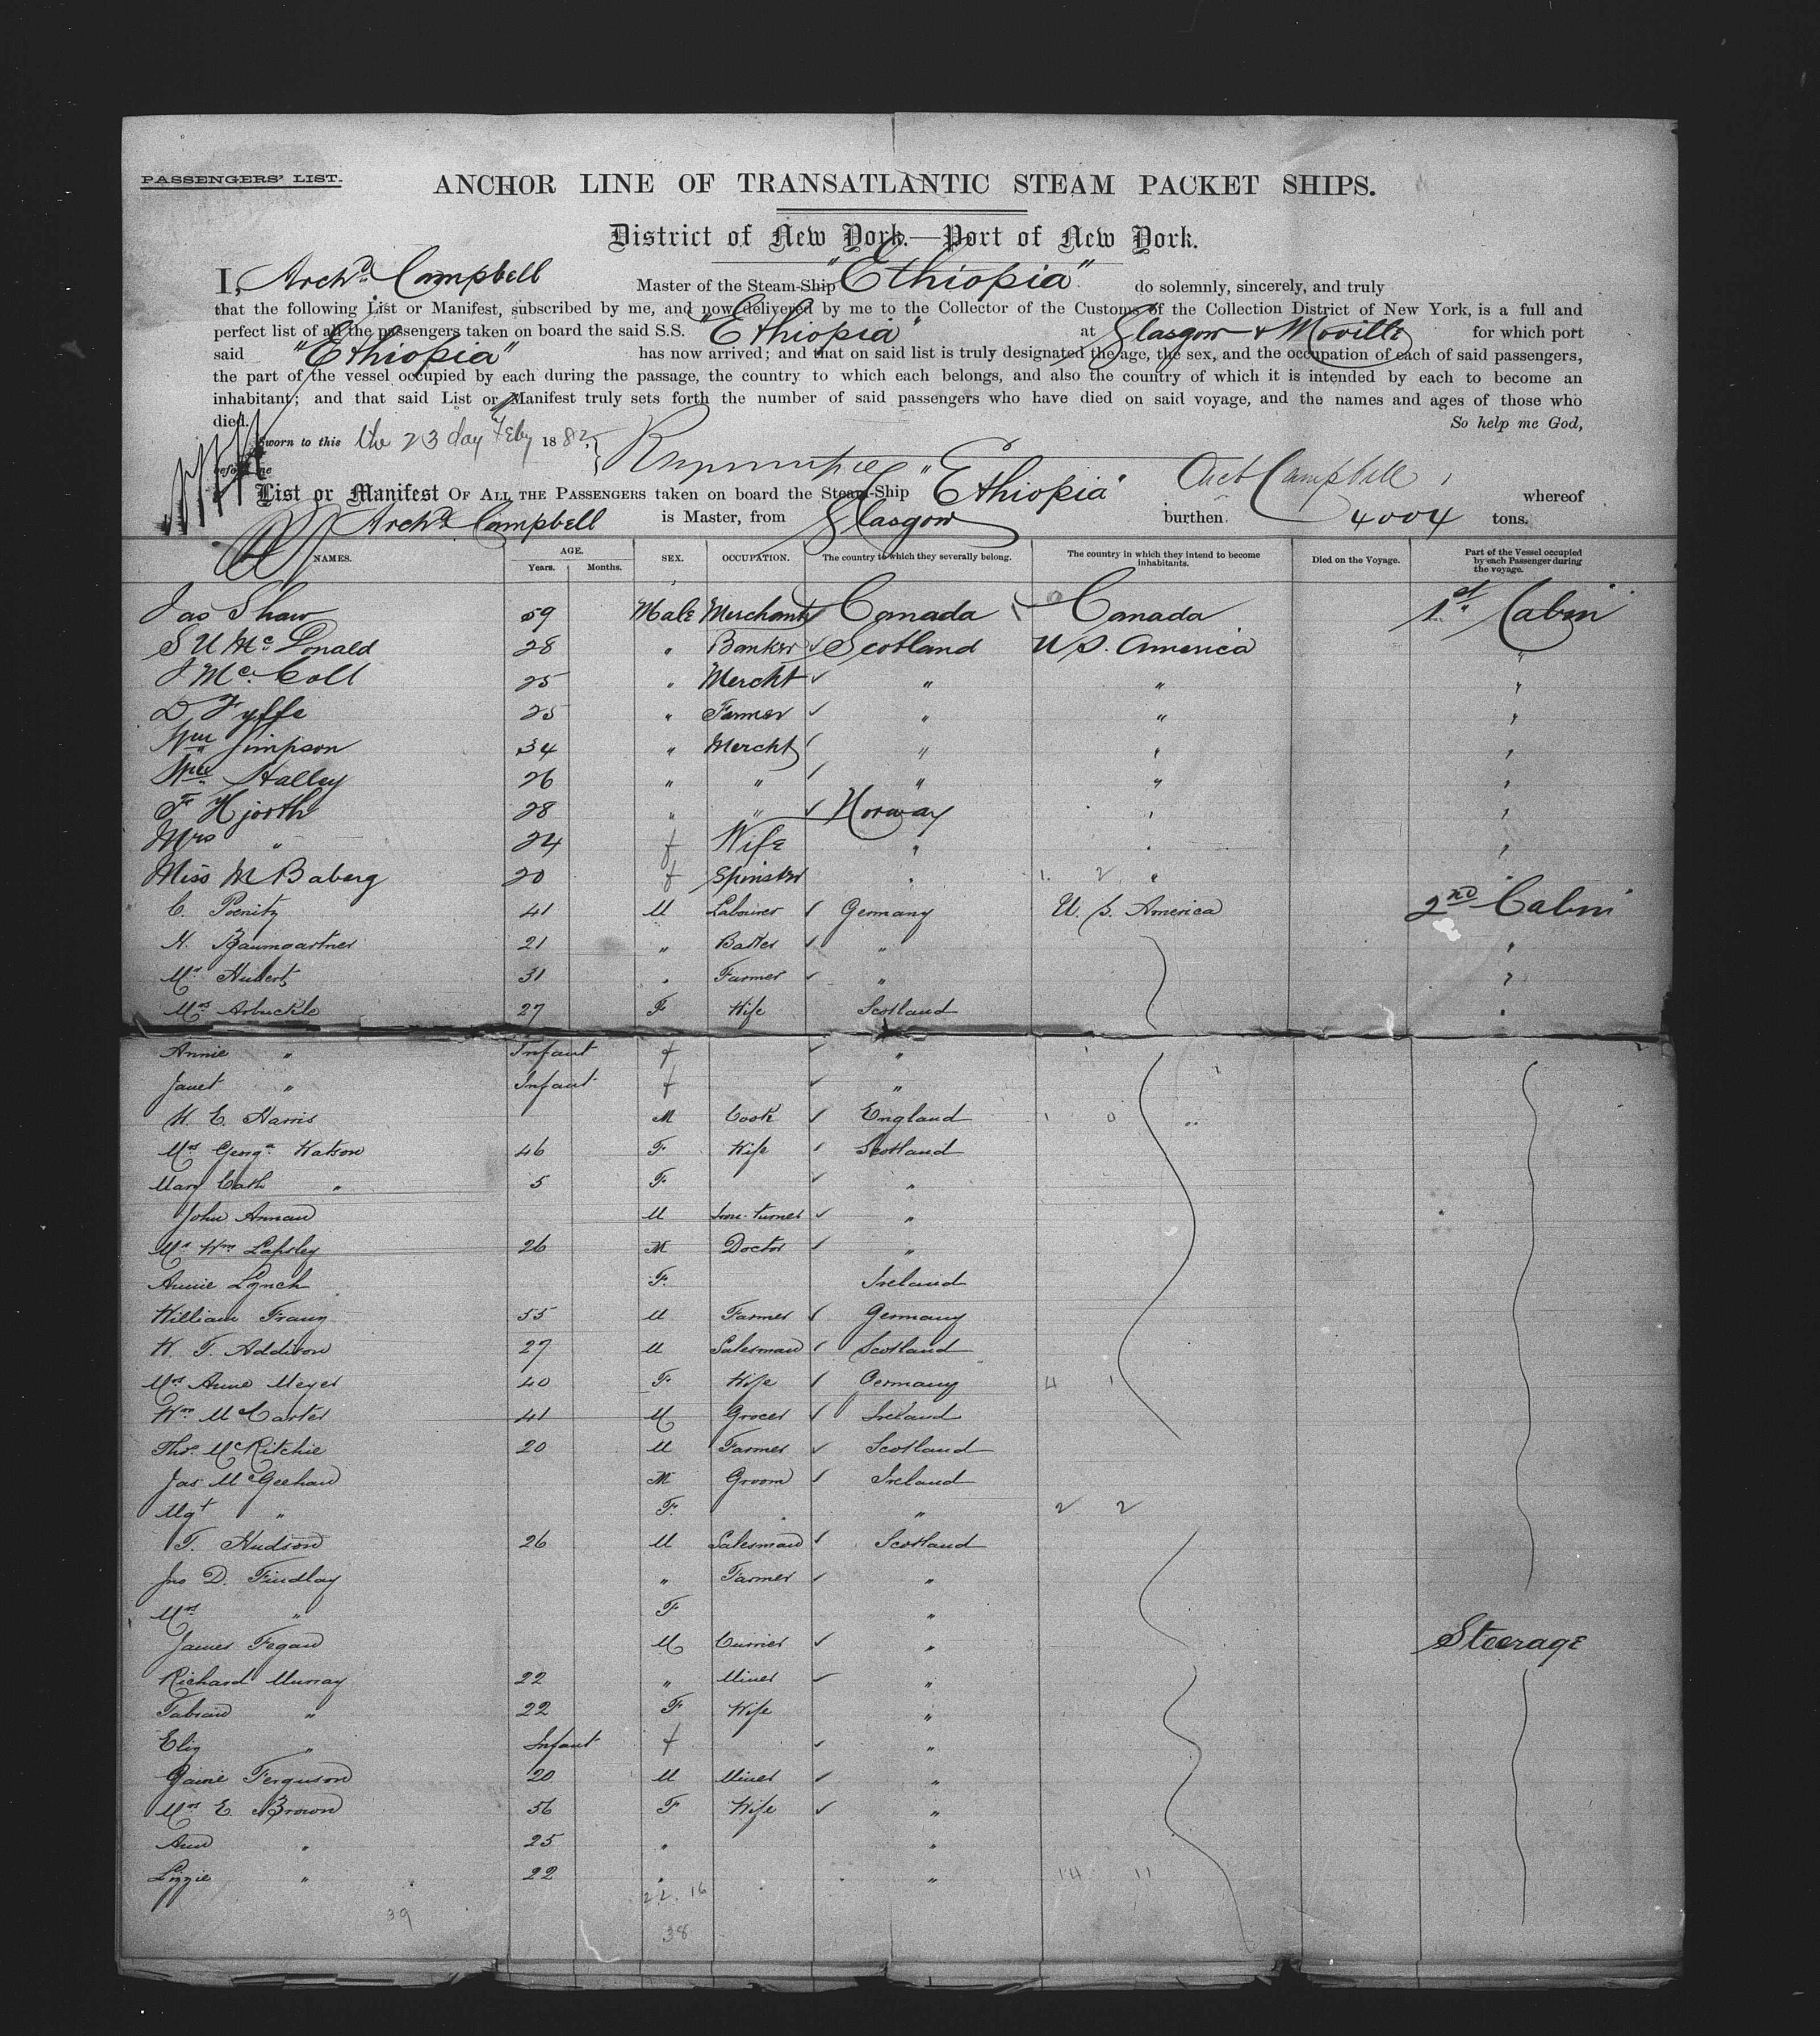 PASSENGERS' LIST.
ANCHOR LINE OF TRANSATLANTIC STEAM PACKET SHIPS.
District of New York.—Port of New York.
I, Archd. Campbell Master of the Steam-Ship "Ethiopia" do solemnly, sincerely, and truly
that the following List or Manifest, subscribed by me, and now delivered by me to the Collector of the Customs of the Collection District of New York, is a full and
perfect list of all the passengers taken on board the said S.S. "Ethiopia" at Glasgow & Moville for which port
said "Ethiopia" has now arrived; and that on said list is truly designated the age, the sex, and the occupation of each of said passengers,
the part of the vessel occupied by each during the passage, the country to which each belongs, and also the country of which it is intended by each to become an
inhabitant; and that said List or Manifest truly sets forth the number of said passengers who have died on said voyage, and the names and ages of those who
died. So help me God,
Sworn to this the 23 day Feby 1882,
before me Archd Campbell
List or Manifest OF ALL THE PASSENGERS taken on board the Steam-Ship "Ethiopia" whereof
Archd. Campbell is Master, from Glasgow burthen 4004 tons.
NAMES. AGE. Years. Months. SEX. OCCUPATION. The country to which they severally belong. The country in which they intend to become inhabitants. Died on the Voyage. Part of the Vessel occupied by each Passenger during the voyage.
Jas Shaw 59 Male Merchant Canada Canada 1st Cabin
S U McDonald 28 " Banker Scotland U S. America "
J McColl 25 " Mercht " " "
D Fyffe 25 " Farmer " " "
Wm Simpson 34 " Mercht " " "
Wm Halley 26 " " " " "
F Hjorth 28 " " Norway " "
Mrs " 24 f Wife " " "
Miss M Baberg 20 f Spinster " 1. 2 " "
C. Poenitz 41 M Labourer Germany U. S. America 2nd Cabin
H. Baumgartner 21 " Baker " "
Mr Hubert 31 " Farmer " "
Mrs Arbuckle 27 F Wife Scotland "
Annie " Infant f "
Janet " Infant f "
W. E. Harris M Cook England 1 0
Mrs Georg. Watson 46 F Wife Scotland
Mary Cath " 5 F "
John Annan M Iron-turner "
Mr Wm Lapsley 26 M Doctor "
Annie Lynch F. Ireland
William Franz 55 M Farmer Germany
W. T. Addison 27 M Salesman Scotland
Mrs Anne Meyer 40 F Wife Germany 4 1
Wm McCarter 41 M Grocer Ireland
Thos. McRitchie 20 M Farmer Scotland
Jas McGeehan M Groom Ireland
Mgt " F. " 2 2
T. Hudson 26 M Salesman Scotland
Jno D. Findlay " Farmer "
Mrs " F "
James Fegan M Currier " Steerage
Richard Murray 22 " Miner "
" 22 F Wife "
Eliz " Infant f "
Ferguson 20 M Miner "
Mrs E. Brown 56 F Wife "
Ann " 25 " "
Lizzie " 22 " " 14 11
22. 16
39 38